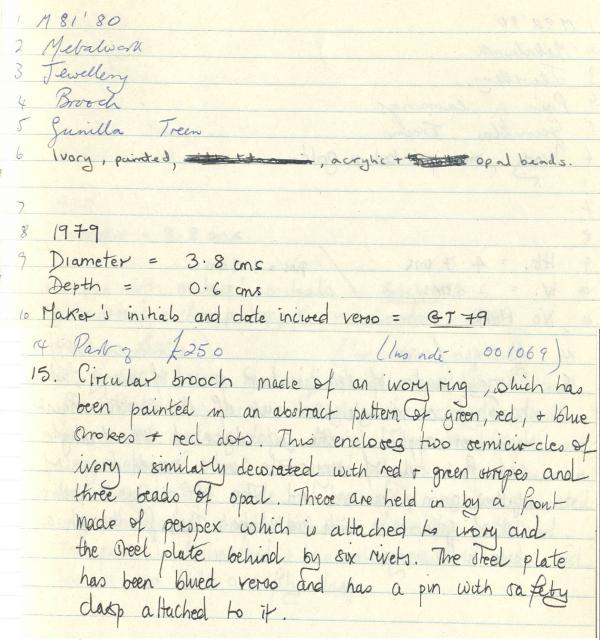 1 M 81'80
2 Metalwork
3 Jewellery
4 Brooch
5 Gunilla Treen
6 Ivory, painted, , acrylic + opal beads.
7
8 1979
9 Diameter = 3.8 cms
Depth = 0.6 cms
10 Maker's initials and date incised verso = GT 79
14 Part of £250 (Ins note 001069)
15. Circular brooch made of an ivory ring, which has
been painted in an abstract pattern of green, red, + blue
strokes + red dots. This encloses two semicircles of
ivory, similarly decorated with red + green stripes and
three beads of opal. These are held in by a front
made of perspex which is attached to ivory and
the steel plate behind by six rivets. The steel plate
has been blued verso and has a pin with safety
clasp attached to it.